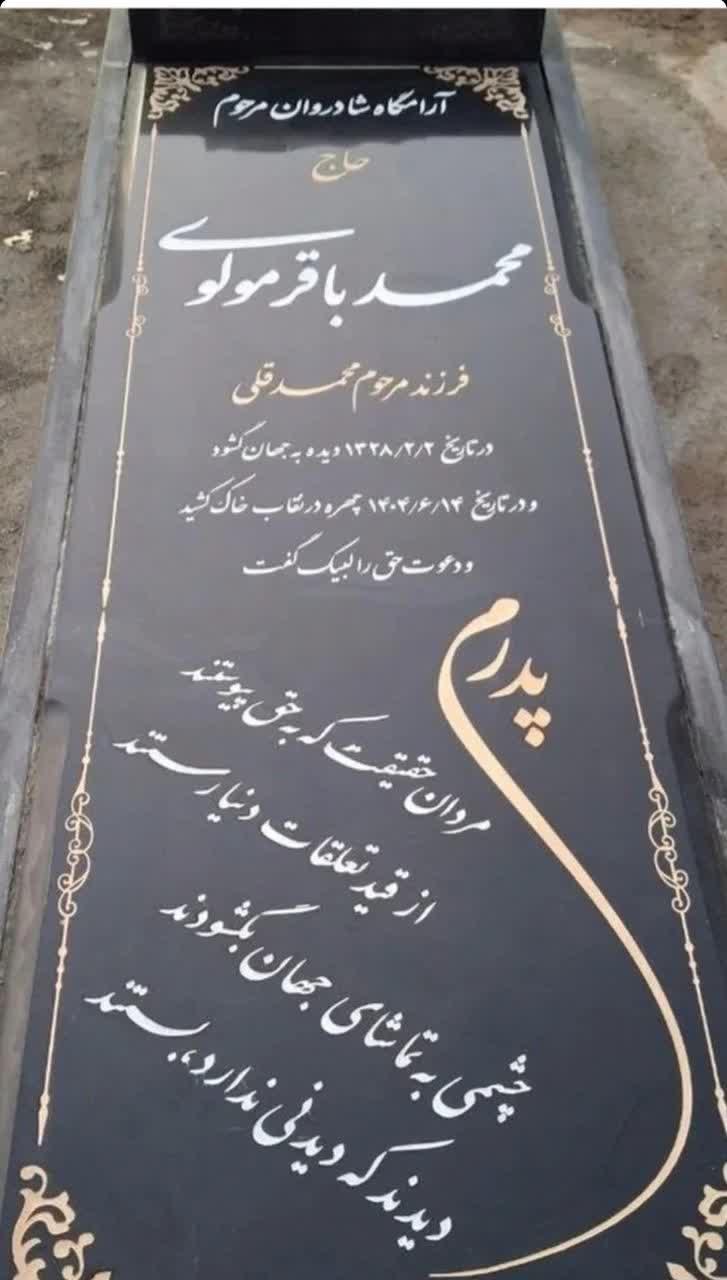 آرامگاه شادروان مرحوم
حاج
محمد باقر مولوی
فرزند مرحوم محمد قلی
در تاریخ ۱۳۲۸/۲/۲ دیده به جهان گشود
و در تاریخ ۱۴۰۴/۶/۱۴ چهره در نقاب خاک کشید
و دعوت حق را لبیک گفت
پدرم
مردان حقیقت که به حق پیوستند
از قید تعلقات دنیا رستند
چشمی به تماشای جهان بگشودند
دیدند که دیدنی ندارد، بستند